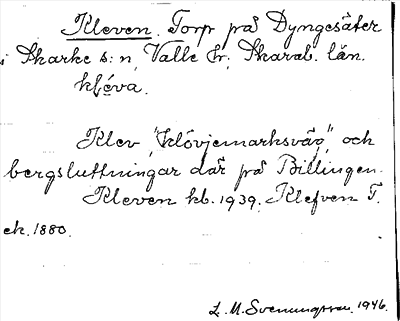 Kleven. Torp på Dyngesäter
i Skarke s:n, Valle hr; Skarab. län.
kļéva.
Klev "klövjemarksväg", och
bergsluttningar där på Billingen.
Kleven kb. 1939. Klefven T.
ek. 1880.
L. M. Svenungsson. 1946.